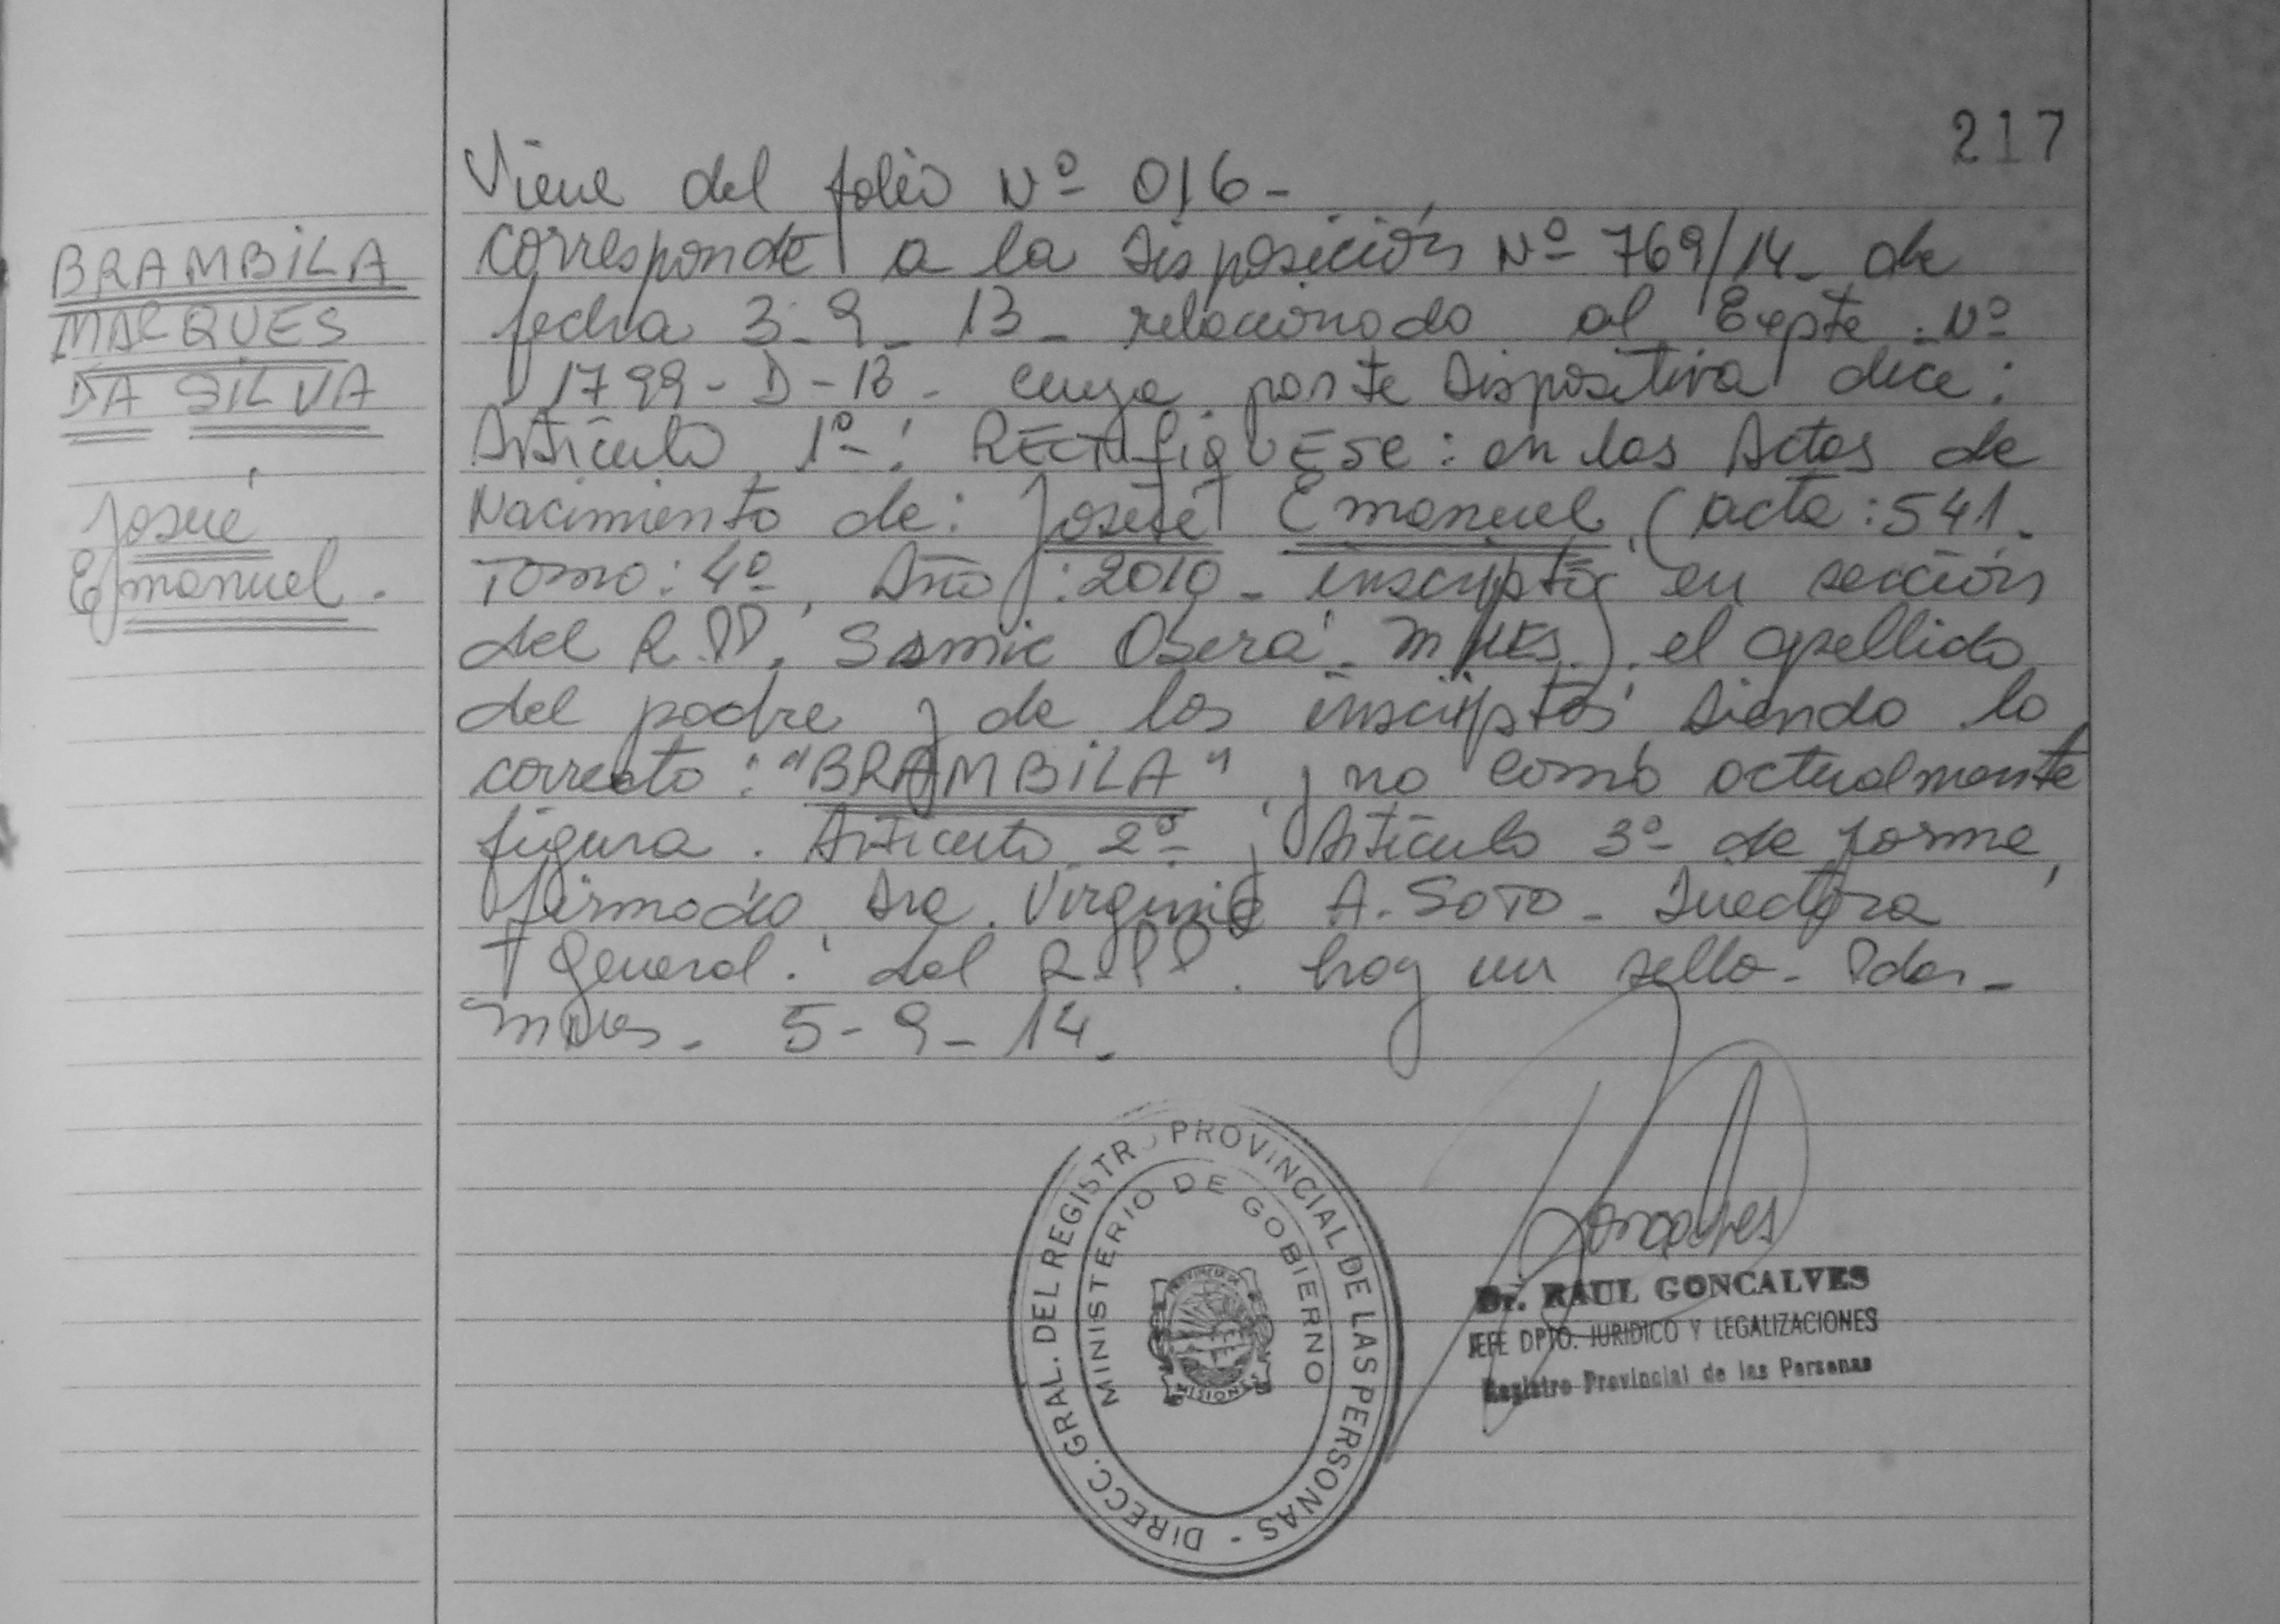 217
Viene del folio Nº 016-
corresponde a la Disposición Nº 769/14- de
fecha 3-9-13- relacionado al Expte. Nº
1799-D-13- cuya parte Dispositiva dice:
Artículo 1º-: RECTIFIQUESE: en las Actas de
Nacimiento de: Josué Emanuel, (acta: 541-
Tomo: 4º, Año: 2010- inscripta en sección
del R.PP. Samic Oberá- Mnes). el apellido
del padre y de los inscriptos siendo lo
correcto: "BRAMBILA" y no como actualmente
figura. Artículo 2º y Artículo 3º de forma,
firmado Dra. Virginia A. SOTO- Directora
General. del R.PP. hay un sello- Pdas-
Mnes- 5-9-14.
BRAMBILA
MARQUES
DA SILVA
Josué
Emanuel.
DIRECC. GRAL. DEL REGISTRO PROVINCIAL DE LAS PERSONAS -
MINISTERIO DE GOBIERNO
PROVINCIA DE
MISIONES
Goncalves
Dr. RAUL GONCALVES
JEFE DPTO. JURIDICO Y LEGALIZACIONES
Registro Provincial de las Personas